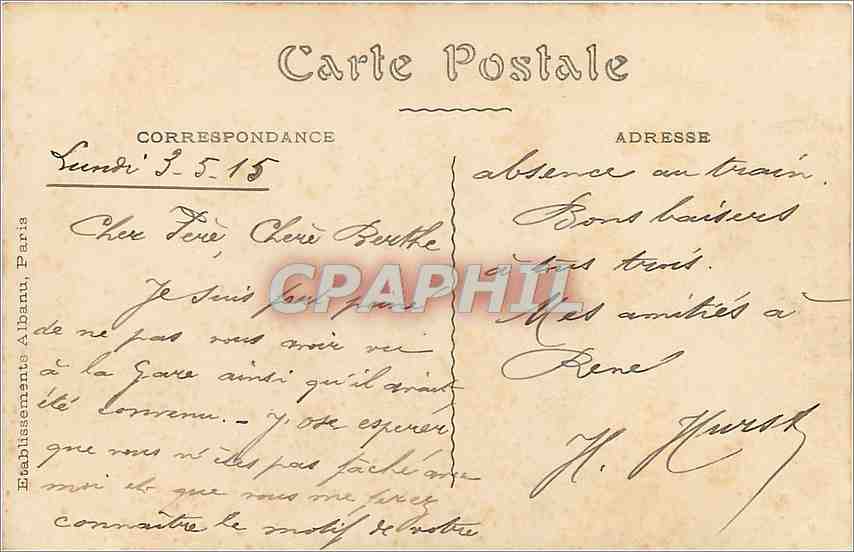 Carte Postale
CORRESPONDANCE
Lundi 3-5-15
Cher Père, Chère Berthe
Je suis
de ne pas vous avoir vu
à la Gare ainsi qu'il avait
été convenu. - J'ose espérer
que vous n'êtes pas fâché avec
moi et que vous me ferez
connaître le motif de votre
ADRESSE
absence au train.
Bons baisers
à tous trois.
Mes amitiés à
René
H. Hurst
Etablissements Albanu, Paris
CPAPHIL